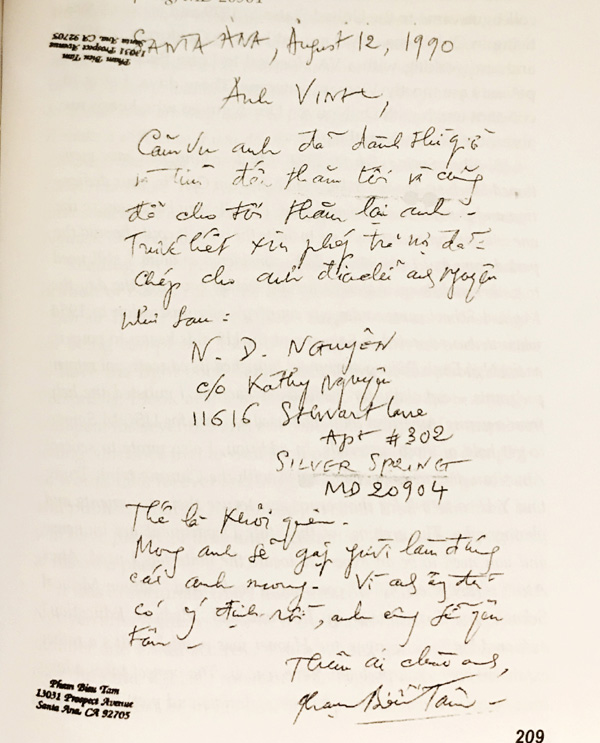 Pham Bieu Tam
13031 Prospect Avenue
Santa Ana, CA 92705
SANTA ANA, August 12, 1990
Anh VINH,
Cảm ơn anh đã dành thì giờ
và tìm đến thăm tôi và cũng
để cho tôi thăm lại anh -
Trước hết xin phép trả nợ đã -
Chép cho anh địa chỉ anh Nguyên
như sau :
N. D. NGUYÊN
c/o Kathy Nguyễn
11616 Stewart lane
Apt #302
SILVER SPRING
MD 20904
Thế là khỏi quên -
Mong anh sẽ gặp người làm đúng
cái anh mong - Vì anh ấy đã
có ý định rồi, anh cũng sẽ yên
tâm -
Thân ái chào anh,
Phạm Biểu Tâm -
Pham Bieu Tam
13031 Prospect Avenue
Santa Ana, CA 92705
209